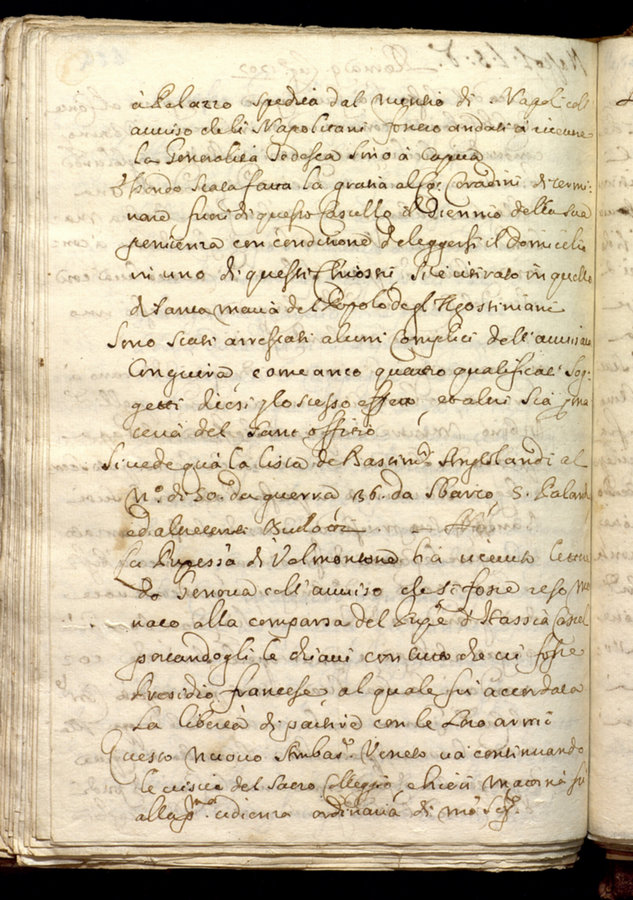 à Palazzo spedita dal nuntio di Napoli coll
auuiso che li Napolitani fossero andati à riceuere
la Generalità Todesca sino à Capua
Essendo stata fatta la gratia al Sigr Corradini di termi-
nare fuori di questo Castello il Biennio della sua
penitenza con conditione d'eleggersi il domicilio
in uno di questi Chiostri si è ritirato in quello
di Santa Maria del Popolo degl'Agostiniani
Sono stati arrestati alcuni Complici dell'auuisata
Congiura come anco quattro qualificati Sog-
getti dicesi p lo stesso effetto, et altri sia p ma
teria del Sant'offitio
Si uede quà la lista de Bastimti Anglolandi al
No di 50. da guerra 36. da Sbarco 5. Paland
ed altretanti
La Prpessa di Valmontone hà riceuuto lettere
da Genoua coll'auuiso che si fosse reso Mo
naco alla comparsa del Prpe d'Hassia Cassel
portandogli le chiaui con tutto che ui fosse
Presidio francese, al quale fù accordata
la libertà di partire con le loro armi
Questo nuouo Ambasr Veneto uà continuando
le uisite del Sacro Colleggio, e hieri mattina fù
alla pma udienza ordinaria di